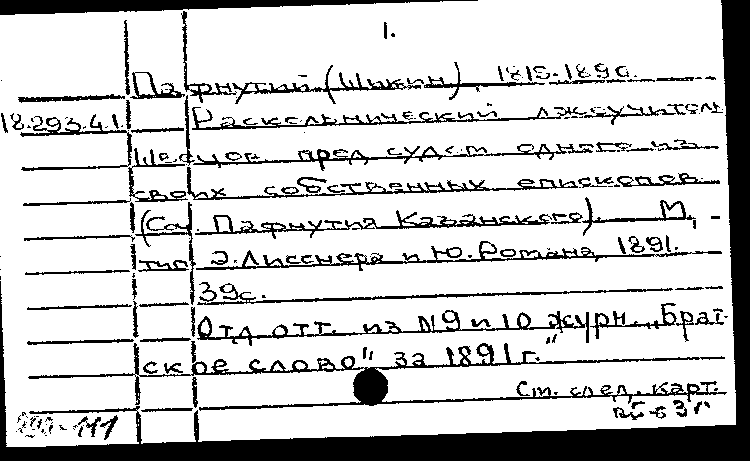 1.
Пафнутий (Шикин), 1815-1890.
18.293.4.1. Раскольнический лжеучитель
Швецов пред судом одного из
своих собственных епископов.
(Соч. Пафнутия Казанского). М,
тип. Э. Лисснера и Ю. Романа, 1891.
39с.
Отд. отт. из №9 и 10 журн. „Брат-
ское слово" за 1891 г."
Ст. след. карт.